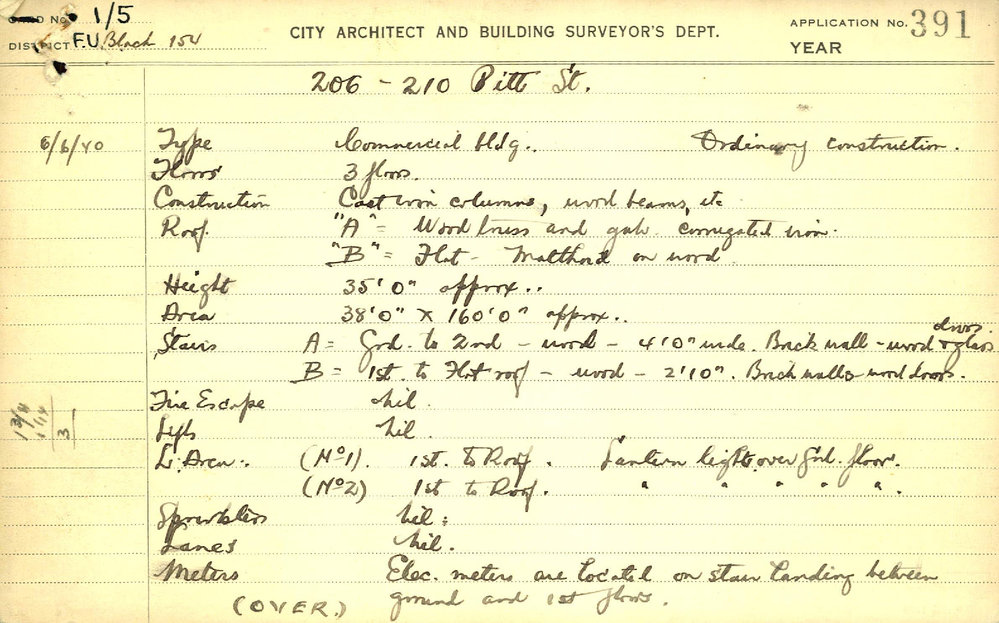 CARD No. 1/5
DISTRICT F.U. Block 154
CITY ARCHITECT AND BUILDING SURVEYOR'S DEPT.
APPLICATION No. 391
YEAR
206 - 210 Pitt St.
6/6/40 Type Commercial bldg.. Ordinary construction.
Floors 3 floors.
Construction Cast iron columns, wood beams, etc
Roof. "A" = Wood truss and galv. corrugated iron.
"B" = Flat - Malthoid on wood.
Height 35'0" approx..
Area 38'0" x 160'0" approx..
Stairs A = Grd. to 2nd - wood - 4'0" wide. Brick wall - wood & glass doors.
B = 1st. to Flat roof - wood - 2'10". Brick walls wood doors.
Fire Escape nil.
Lifts nil.
L. Area:. (No1). 1st. to Roof. Lantern lights over Grd. floor.
(No2) 1st to Roof. " " " " ".
Sprinklers nil.
Lanes nil.
Meters Elec. meters are located on stair landing between
ground and 1st floors.
(OVER.)